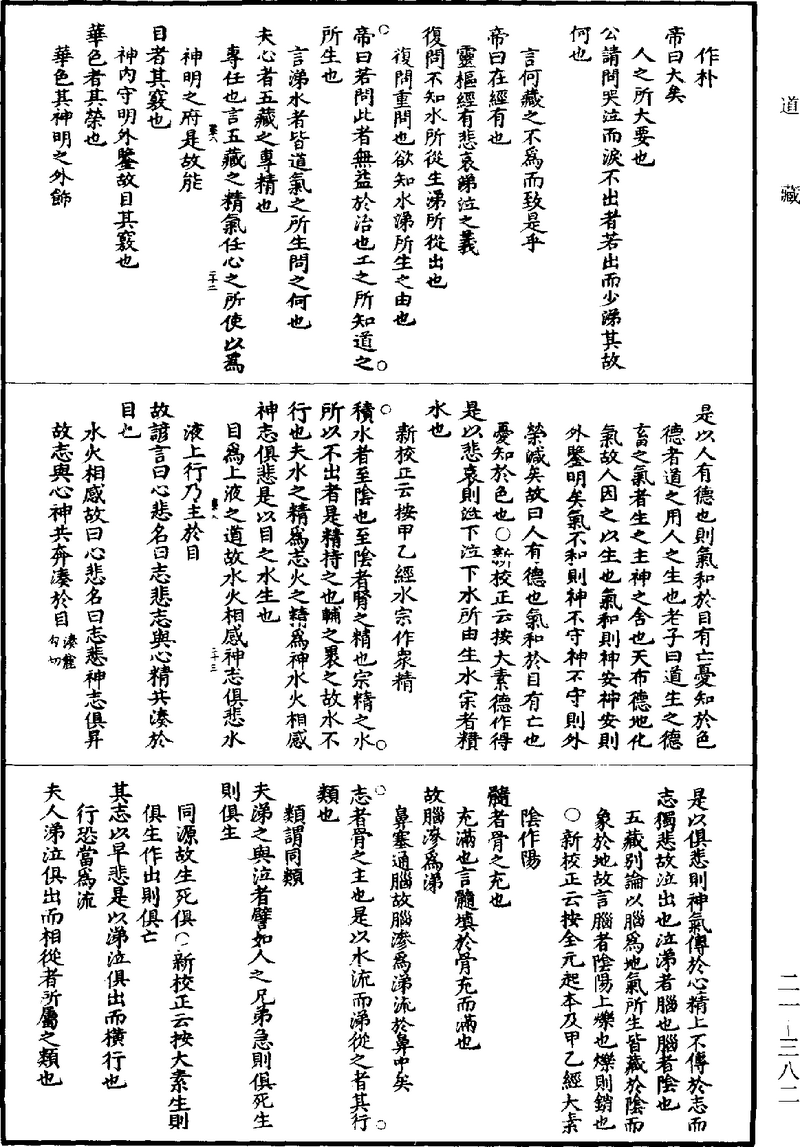 道藏
作朴
帝曰大矣
人之所大要也
公請問哭泣而淚不出者若出而少涕其故
何也
言何藏之不為而致是乎
帝曰在經有也
靈樞經有悲哀涕泣之義
復問不知水所從生涕所從出也
復問重問也欲知水涕所生之由也
帝曰若問此者無益於治也工之所知道之
所生也
言涕水者皆道氣之所生問之何也
夫心者五藏之專精也
專任也言五藏之精氣任心之所使以為
神明之府是故能
目者其竅也
神內守明外鑒故目其竅也
華色者其榮也
華色其神明之外飾
是以人有德也則氣和於目有亡憂知於色
德者道之用人之生也老子曰道生之德
畜之氣者生之主神之舍也天布德地化
氣故人因之以生也氣和則神安神安則
外鑒明矣氣不和則神不守神不守則外
榮減矣故曰人有德也氣和於目有亡也
憂知於色也○新校正云按太素德作得
是以悲哀則泣下泣下水所由生水宗者積
水也
新校正云按甲乙經水宗作眾精
積水者至陰也至陰者腎之精也宗精之水
所以不出者是精持之也輔之裹之故水不
行也夫水之精為志火之精為神水火相感
神志俱悲是以目之水生也
目為上液之道故水火相感神志俱悲水
液上行乃生於目
故諺言曰心悲名曰志悲志與心精共湊於
目也
水火相感故曰心悲名曰志悲神志俱昇
故志與心神共奔湊於目
是以俱悲則神氣傳於心精上不傳於志而
志獨悲故泣出也泣涕者腦也腦者陰也
五藏別論以腦為地氣所生皆藏於陰而
象於地故言腦者陰陽上爍也爍則銷也
○新校正云按全元起本及甲乙經太素
陰作陽
髓者骨之充也
充滿也言髓填於骨充而滿也
故腦滲為涕
鼻塞通腦故腦滲為涕流於鼻中矣
志者骨之主也是以水流而涕從之者其行
類也
類謂同類
夫涕之與泣者譬如人之兄弟急則俱死生
則俱生
同源故生死俱○新校正云按太素生則
俱生作出則俱亡
其志以早悲是以涕泣俱出而橫行也
行恐當為流
夫人涕泣俱出而相從者所屬之類也
二一－三八二